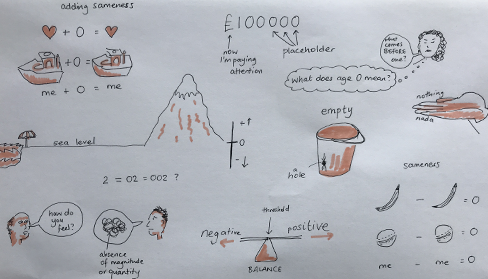 adding sameness
+ 0 =
+ 0 =
me + 0 = me
£100000
now
I'm paying
attention
placeholder
what
comes
BEFORE
one?
What does age 0 mean?
nothing
nada
sea level
+
0
-
empty
a
hole
2 = 02 = 002 ?
how do
you
feel?
absence
of magnitude
or quantity
threshold
negative
positive
BALANCE
sameness
- = 0
- = 0
me - me = 0